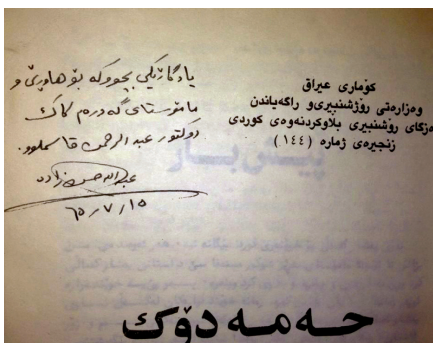 کۆماری عیراق
وەزارەتی رۆژشنبیری و راگەیاندن
دەزگای رۆشنبیری بلاوکردنەوەی کوردی
زنجیرەی ژمارە (١٤٤)
یادگارێکی بچووکە بۆ هاوڕێ و
مامۆستای گەورەم کاک
دوکتور عبدالرحمن قاسملوو.
عبدالله حسن زاده
٦٥/٧/١٥
حەمەدۆک